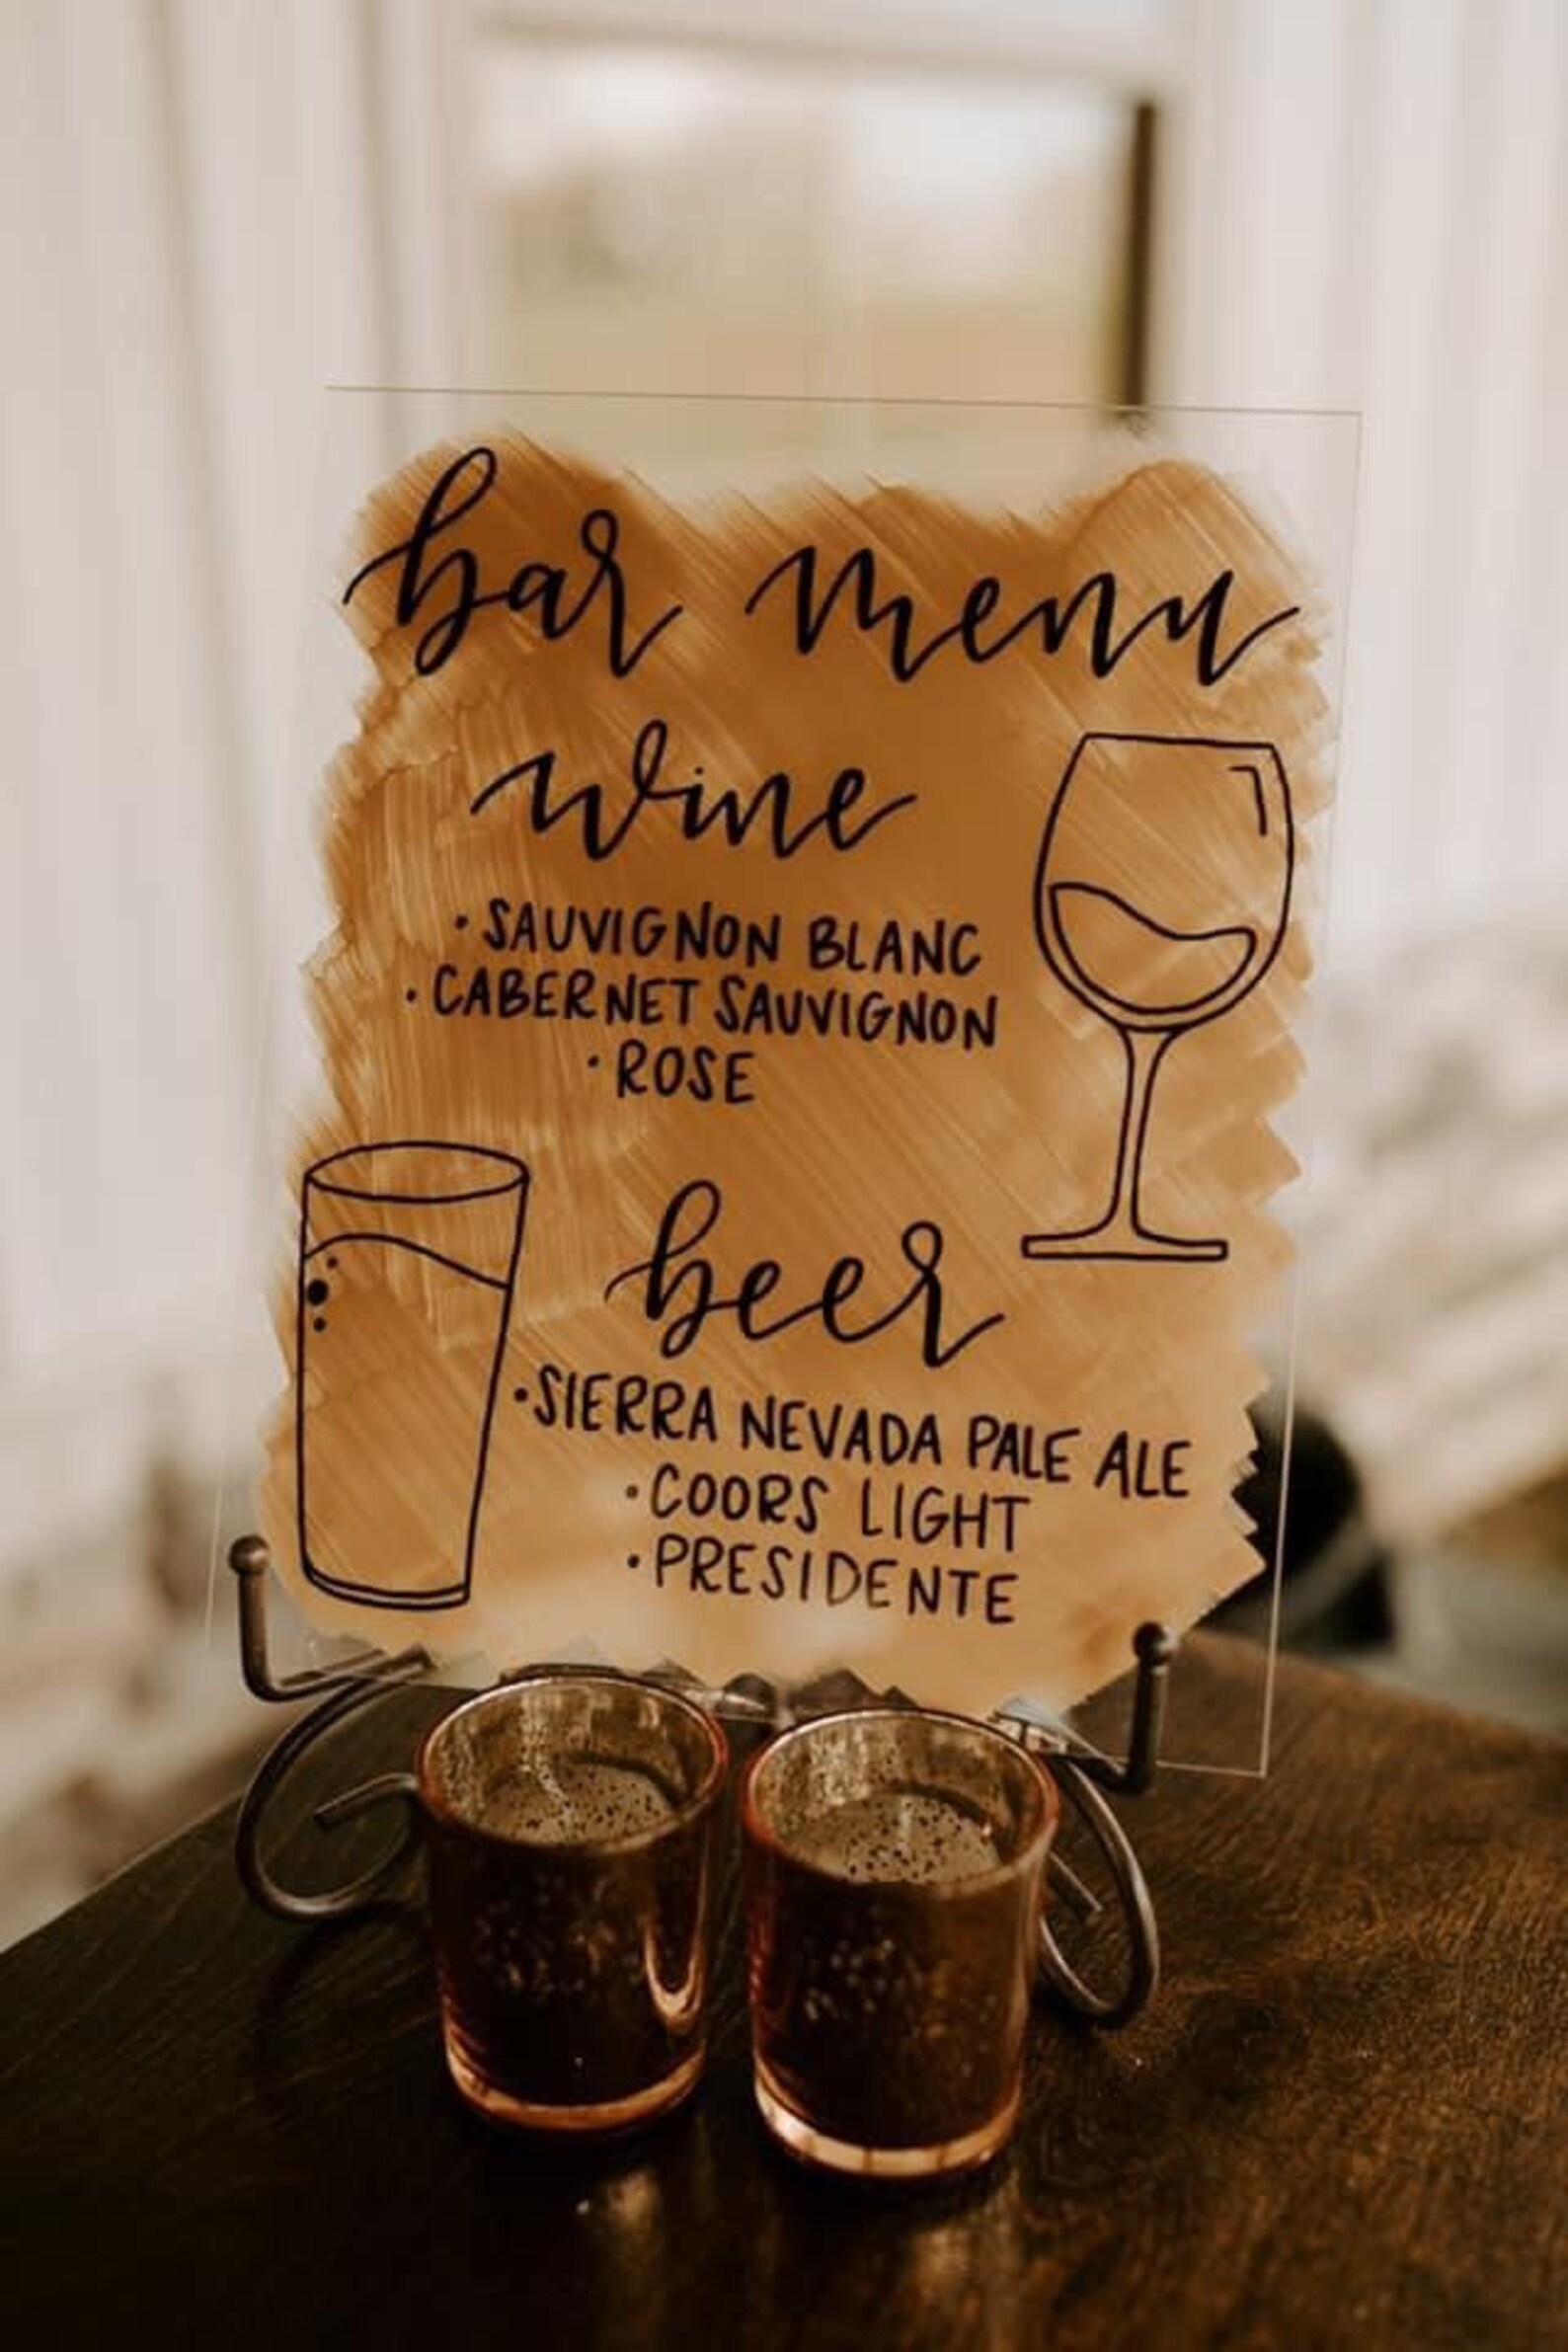 bar menu
wine
· SAUVIGNON BLANC
· CABERNET SAUVIGNON
· ROSE
beer
· SIERRA NEVADA PALE ALE
· COORS LIGHT
· PRESIDENTE